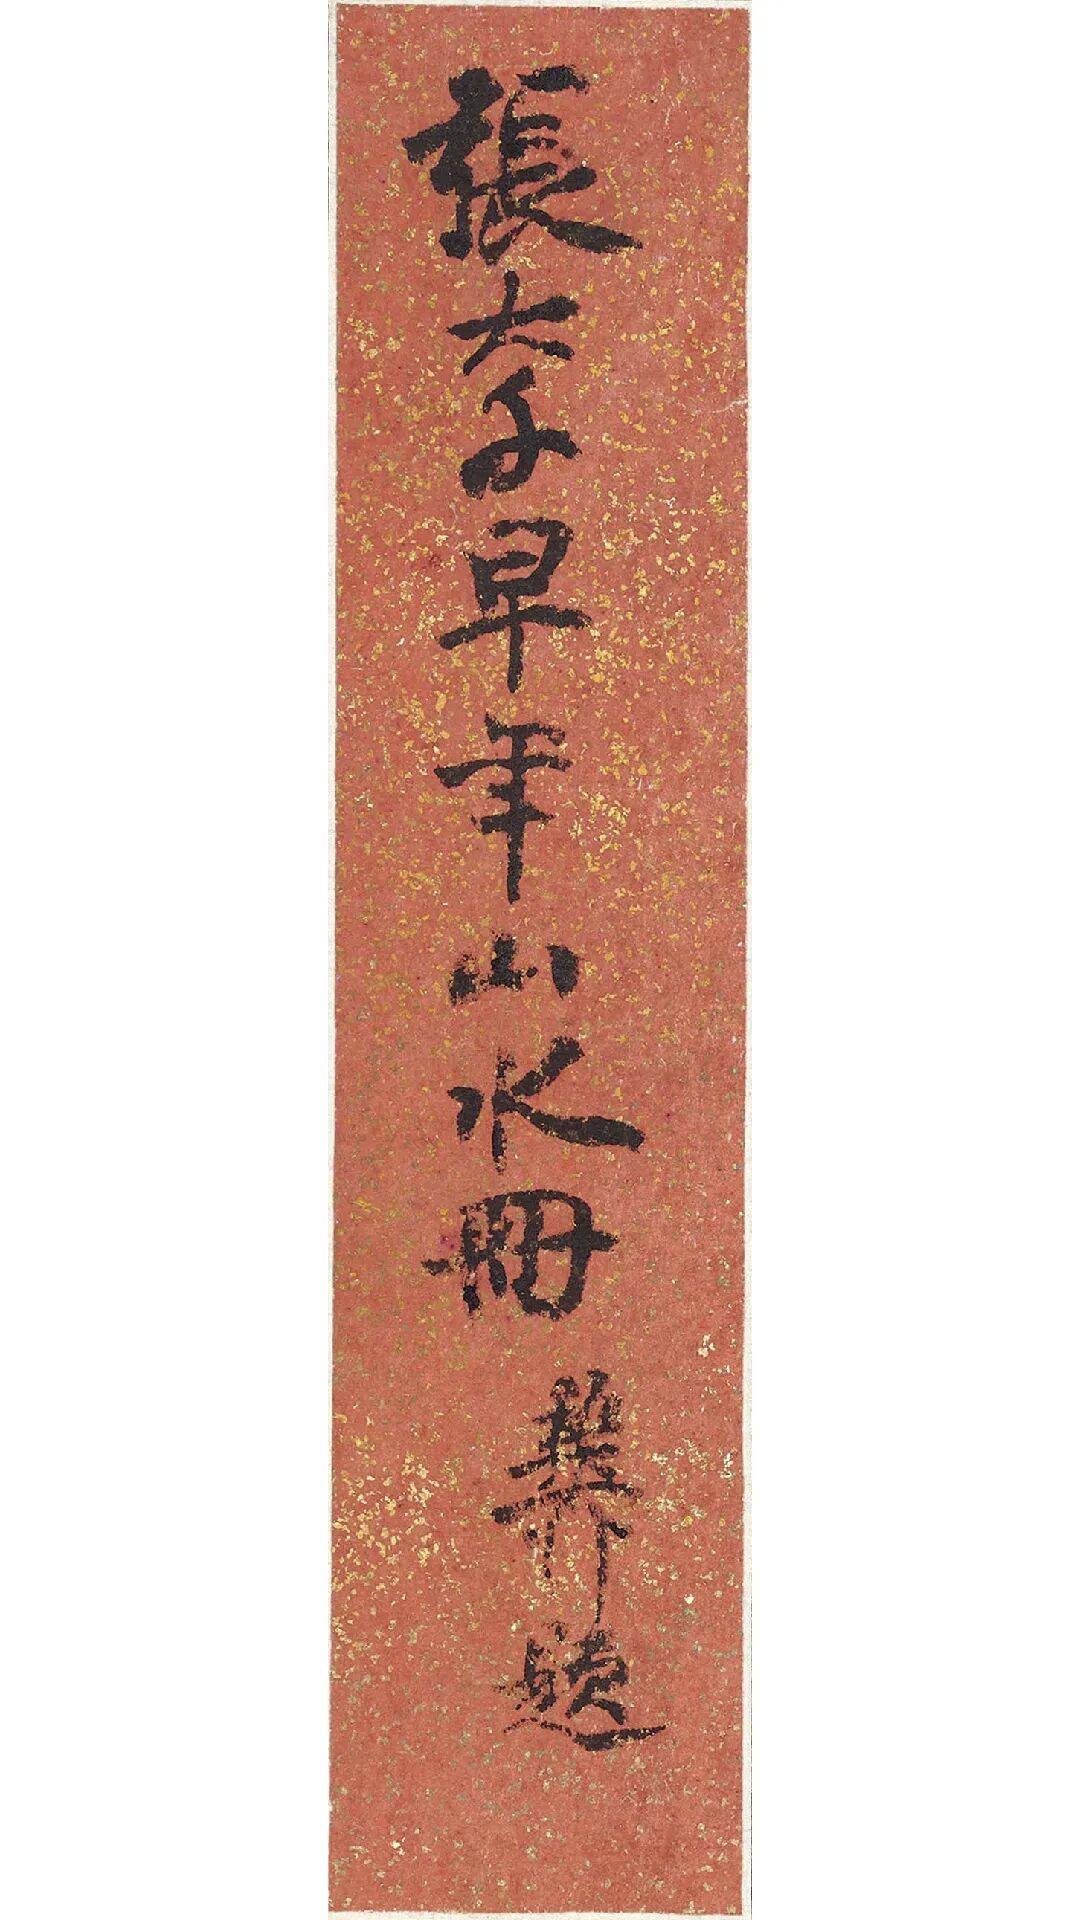 張大千早年山水冊
題